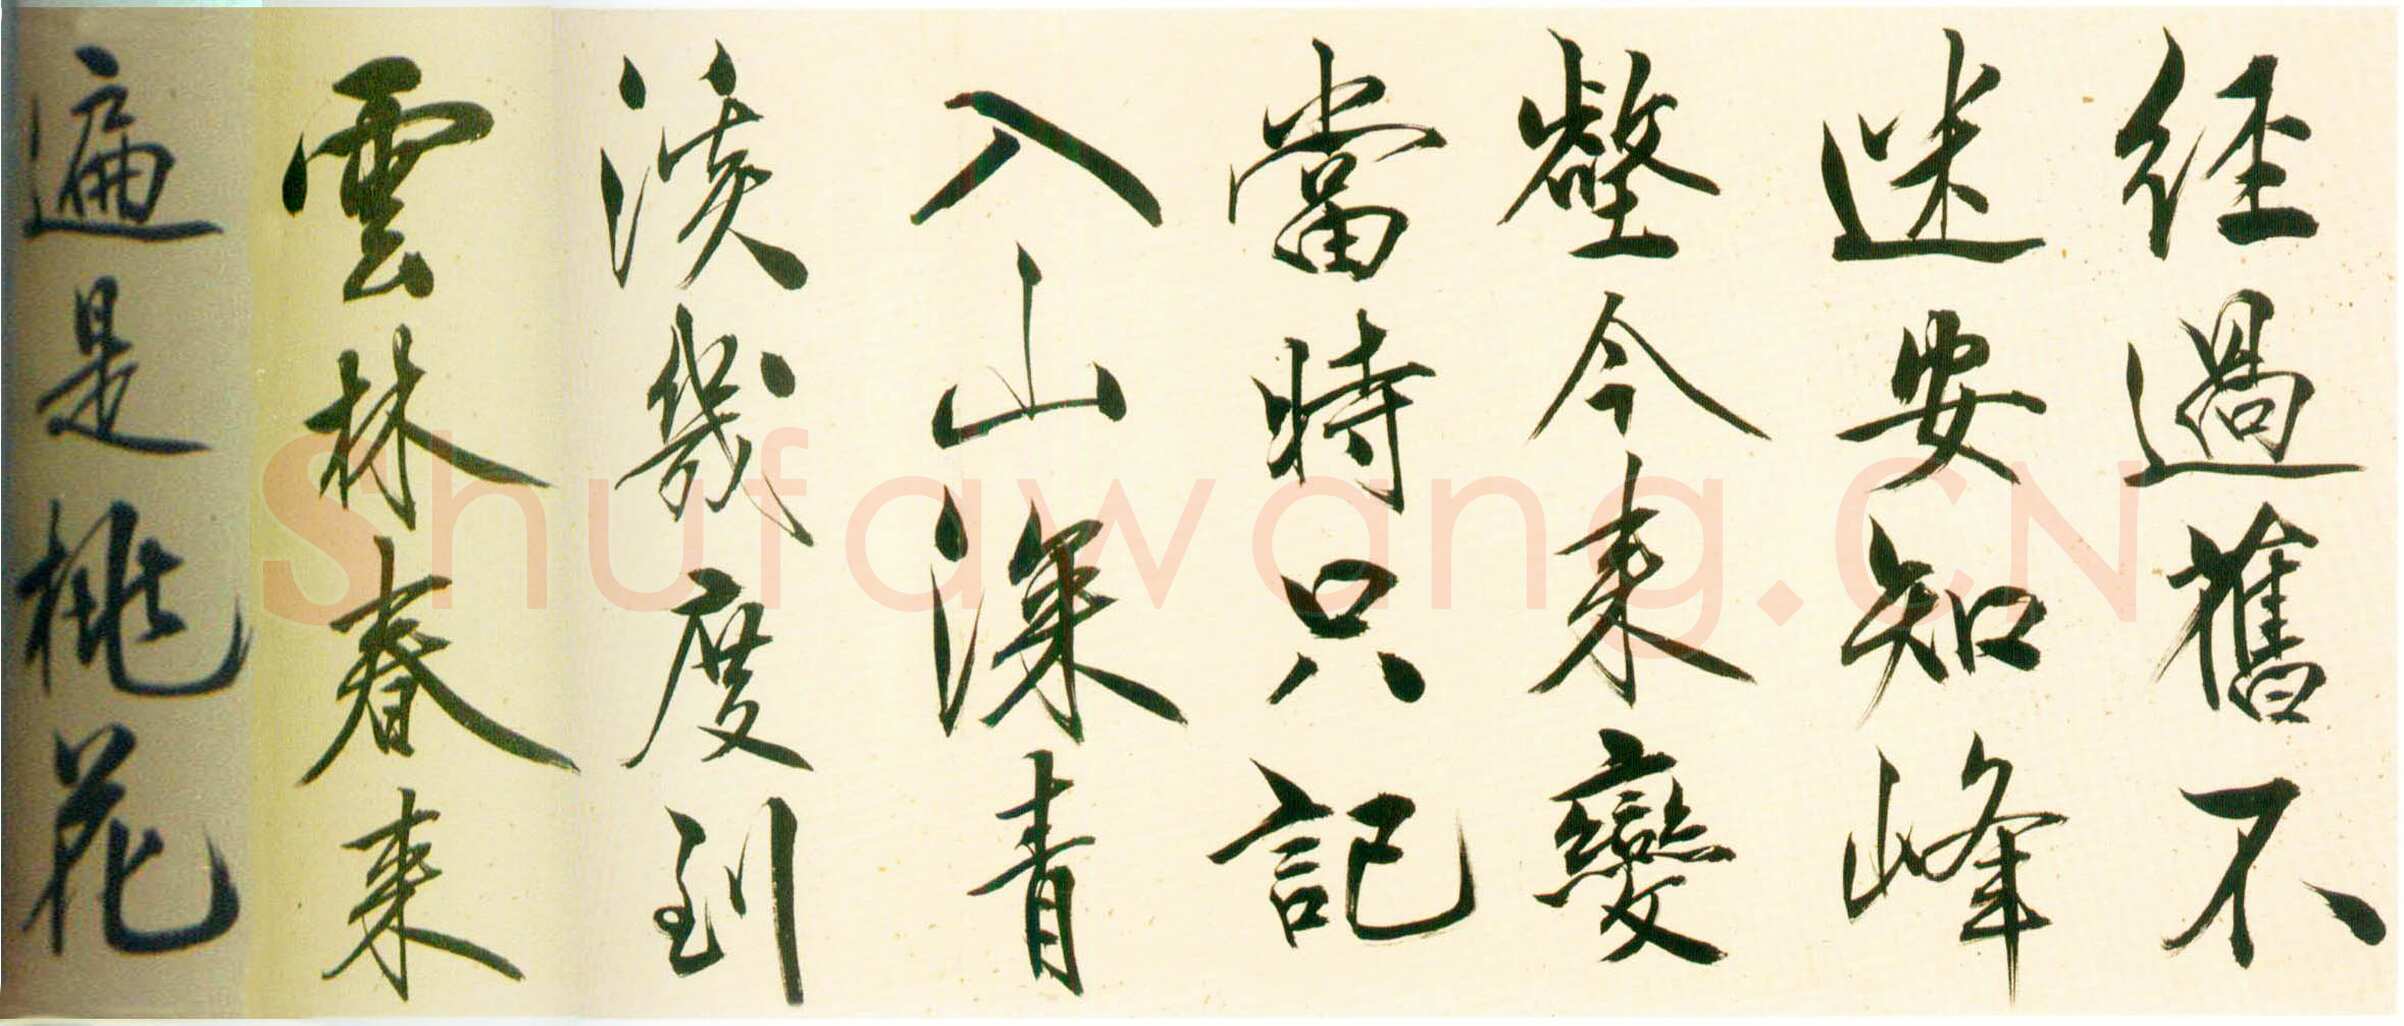 経過舊不
迷安知峰
壑今来變
當時只記
入山深青
溪幾度到
雲林春来
遍是桃花
Shufawang.CN